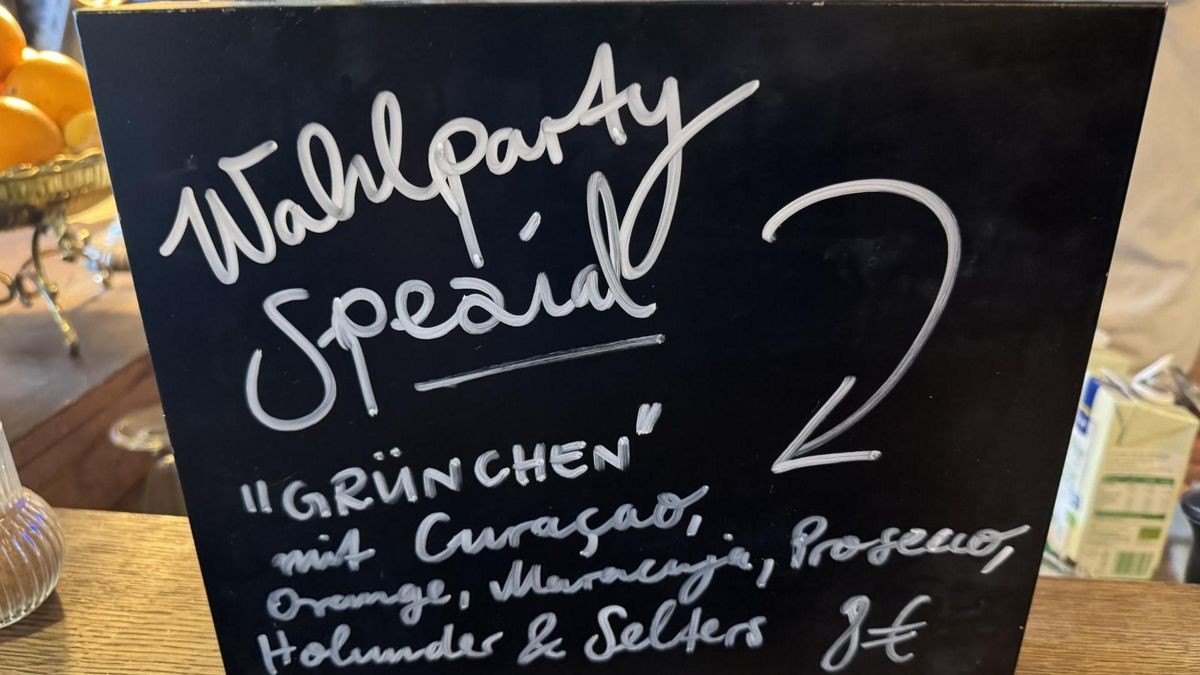 Wahlparty
Spezial
"GRÜNCHEN"
mit Curaçao,
Orange, Maracuja, Prosecco,
Holunder & Selters 8€